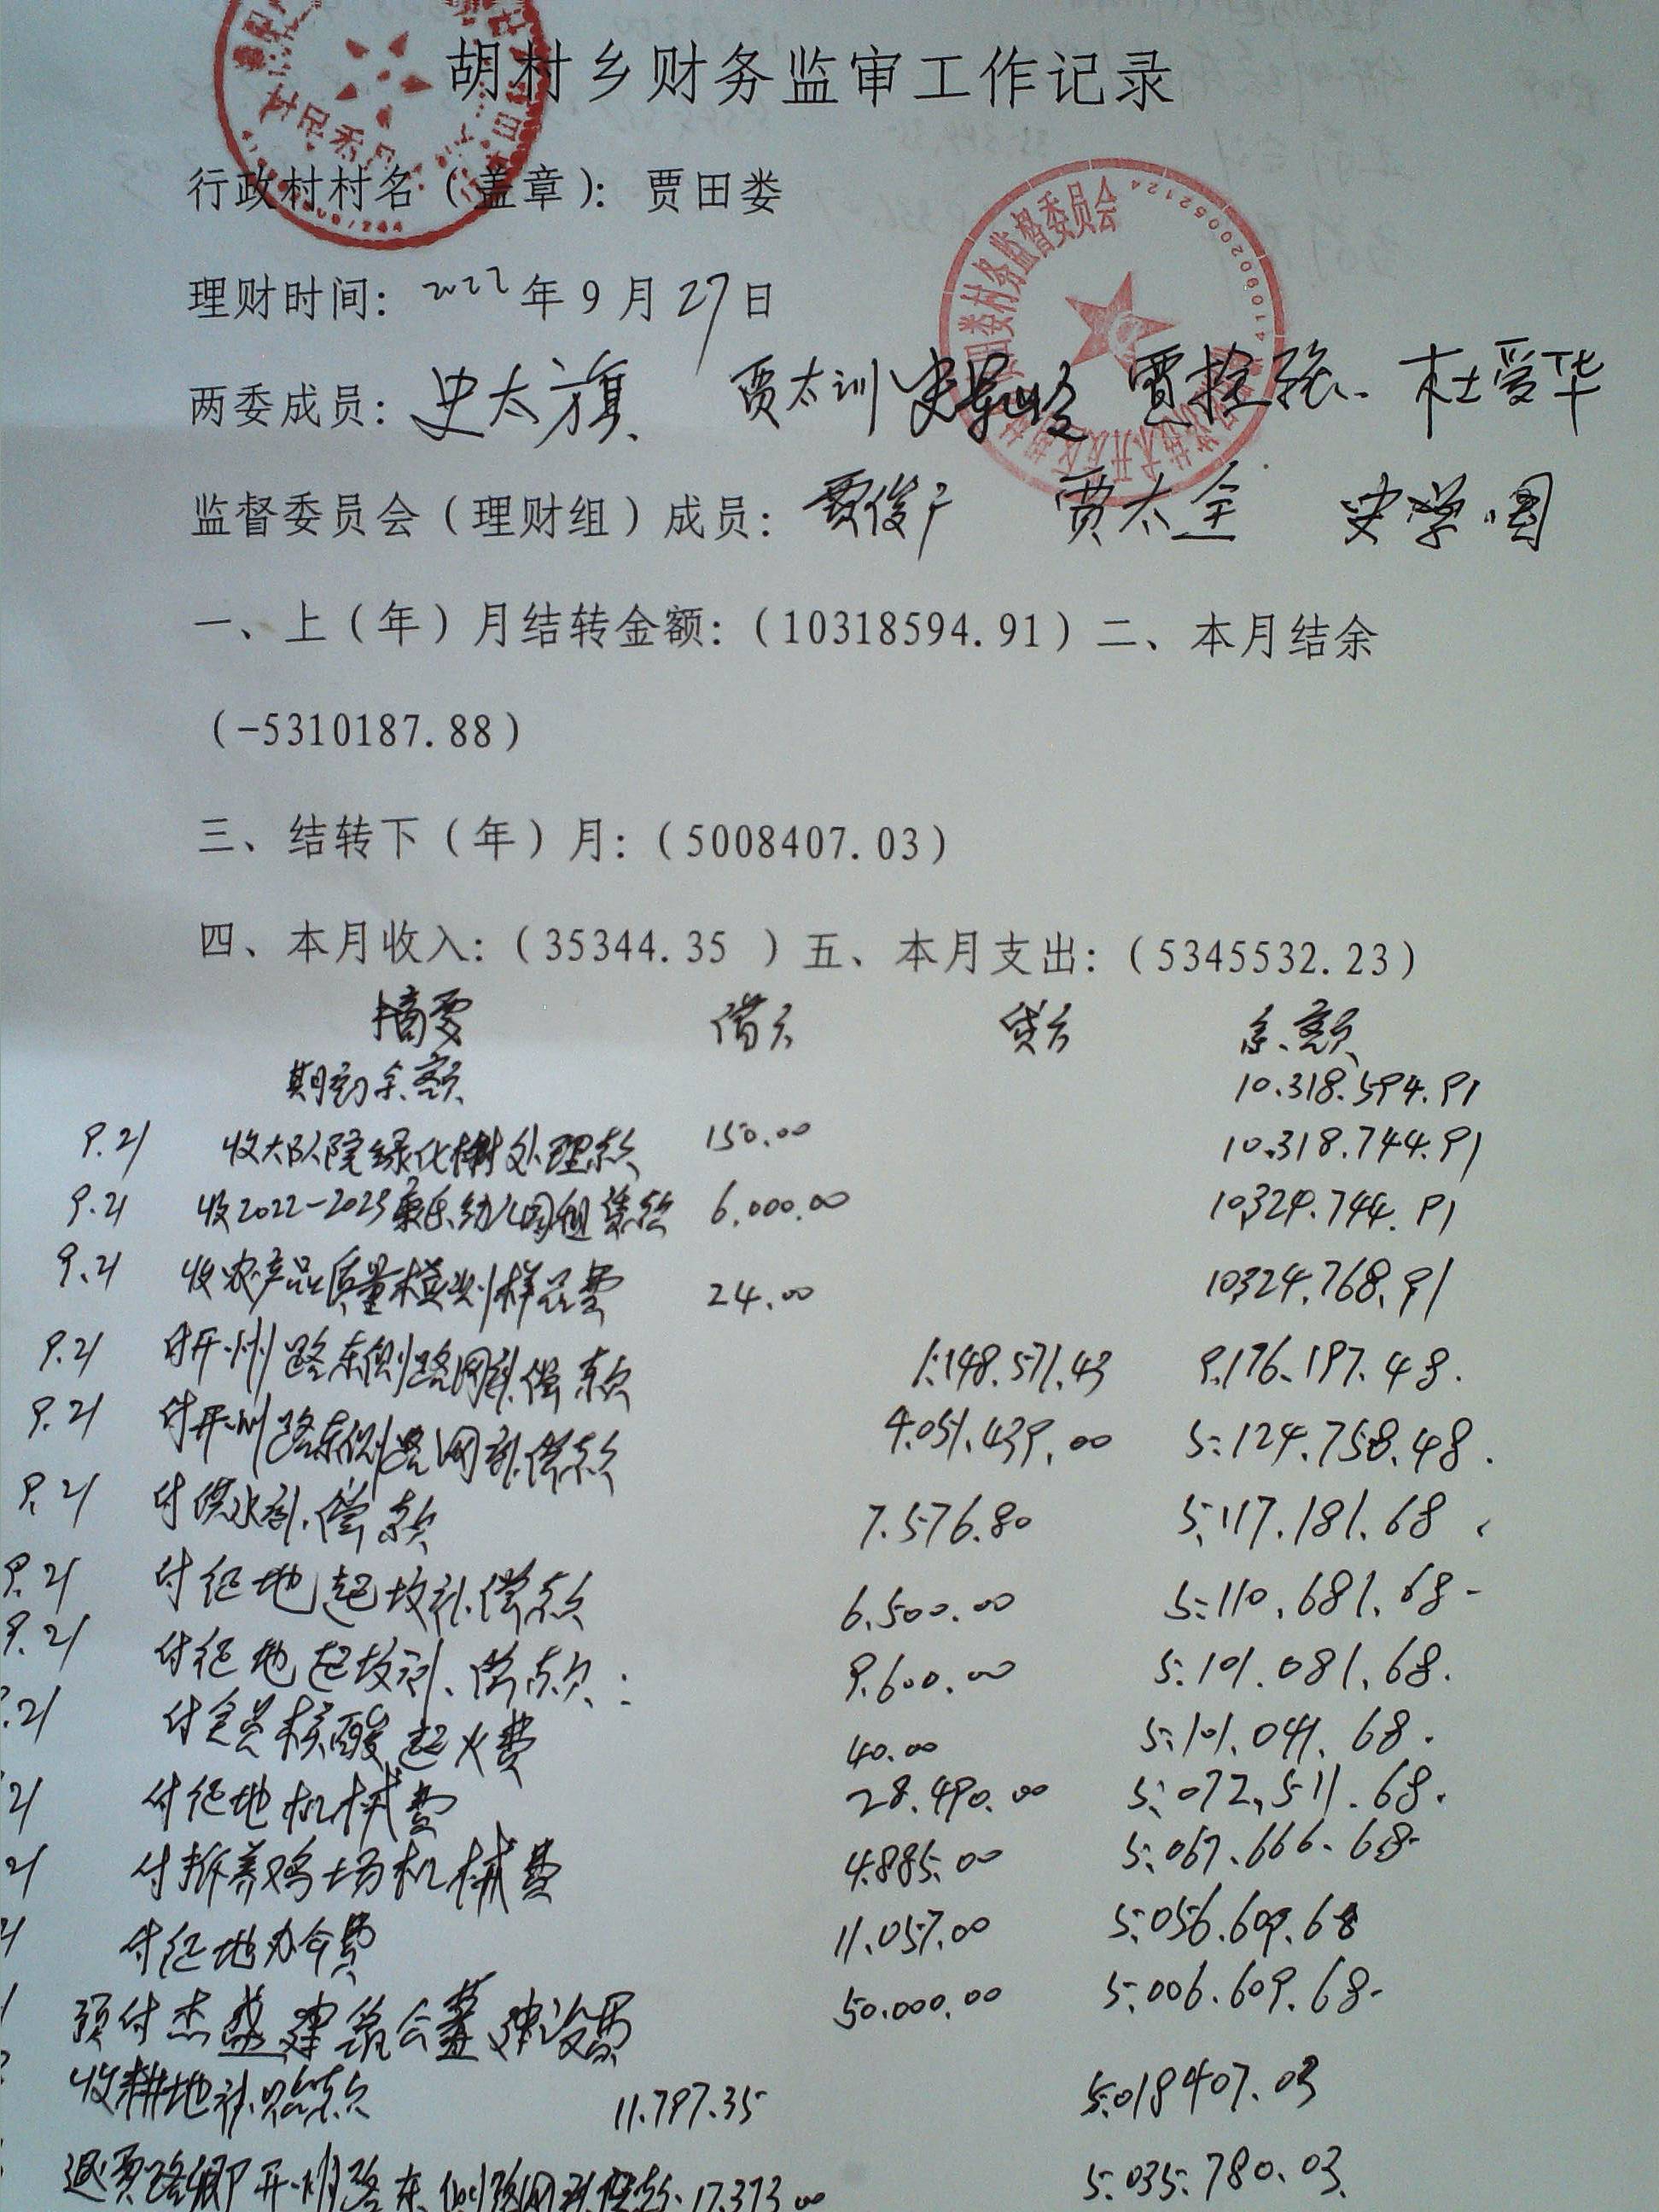 胡村乡财务监审工作记录
行政村村名（盖章）：贾田娄
理财时间：2022年9月27日
两委成员：史太旗 贾太训 贾控强 杜爱华
监督委员会（理财组）成员：贾俊广 贾太全 史学园
田娄村务监督委员会
4109020052124
一、上（年）月结转金额：（10318594.91）二、本月结余
（-5310187.88）
三、结转下（年）月：（5008407.03）
四、本月收入：（35344.35 ）五、本月支出：（5345532.23）
摘要 借方 贷方 余额
期初余额 10.318.594.91
9.21 收大队院绿化树处理款 150.00 10.318.744.91
9.21 收2022-2023康乐幼儿园租赁款 6.000.00 10.324.744.91
9.21 收农产品质量检测样品费 24.00 10324.768.91
9.21 付开州路东侧路网补偿款 1.148.571.43 9.176.197.48.
9.21 付开州路东侧路网补偿款 4.051.439.00 5.124.758.48.
9.21 付供水补偿款 7.576.80 5.117.181.68
9.21 付征地起坟补偿款 6.500.00 5.110.681.68-
9.21 付征地起坟补偿款 9.600.00 5.101.081.68.
.21 付全员核酸起火费 40.00 5.101.041.68.
21 付征地机械费 28.490.00 5.072.511.68.
21 付拆养鸡场机械费 4.885.00 5.067.666.68-
付征地办公费 11.057.00 5.056.609.68
预付杰盛建筑公墓建设费 50.000.00 5.006.609.68-
收耕地补贴款 11.797.35 5.018407.03
退贾路卿开州路东侧路网补偿款 17.373.00 5.035.780.03.